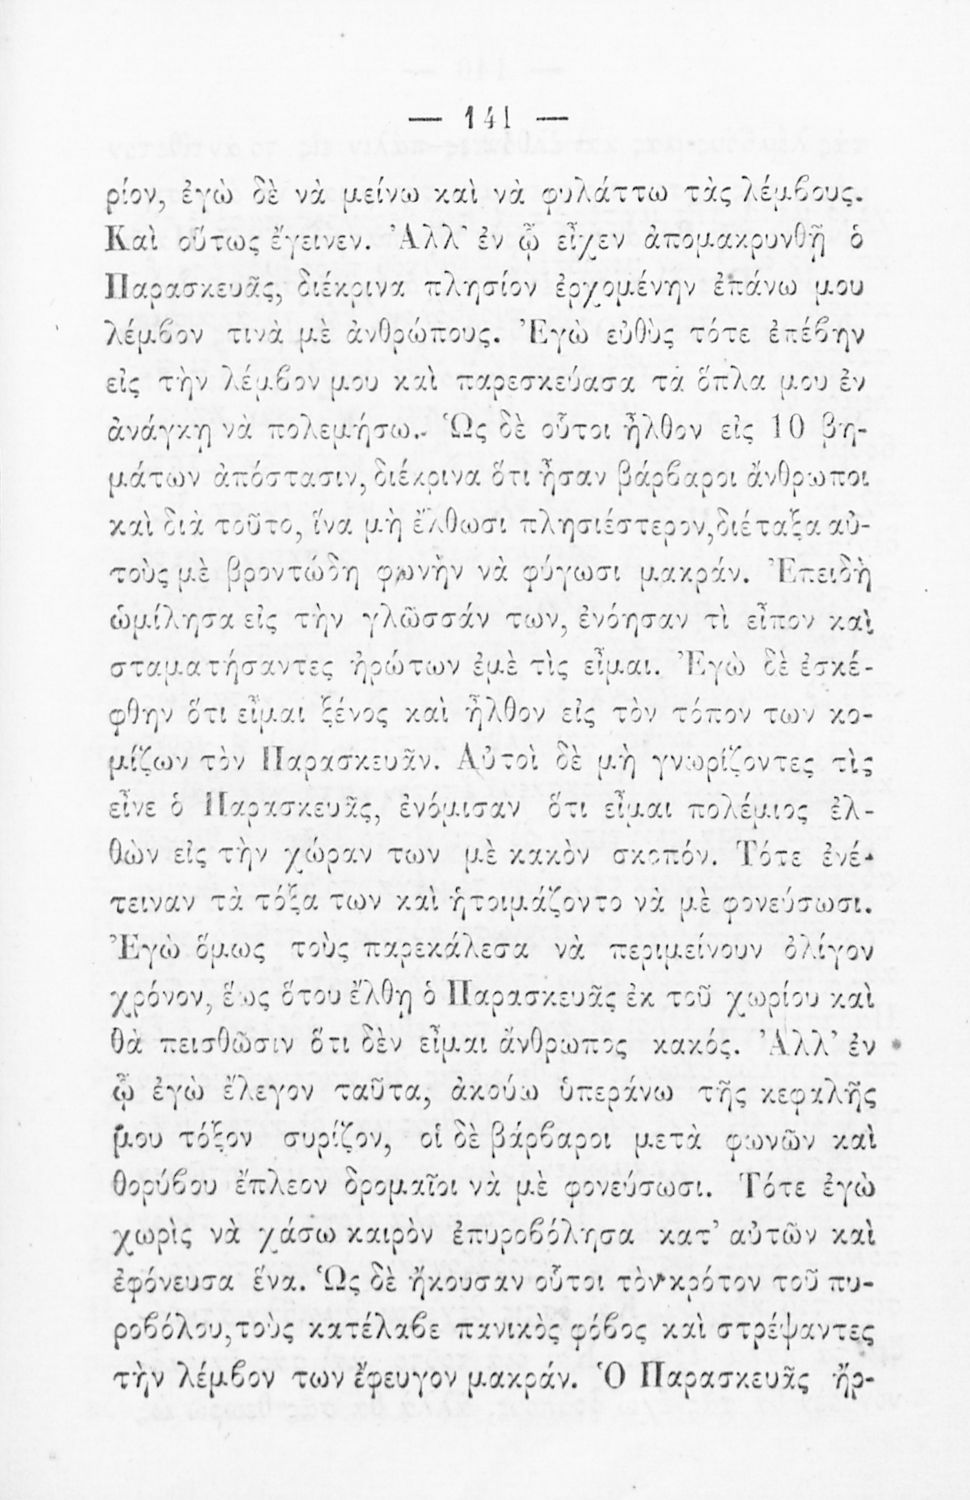 — 141 —
ρίον, ἐγὼ δὲ νὰ μείνω καὶ νὰ φυλάττω τὰς λέμβους.
Καὶ οὕτως ἔγεινεν. Ἀλλ' ἐν ᾧ εἶχεν ἀπομακρυνθῇ ὁ
Παρασκευᾶς, διέκρινα πλησίον ἐρχομένην ἐπάνω μου
λέμβον τινὰ μὲ ἀνθρώπους. Ἐγὼ εὐθὺς τότε ἐπέβην
εἰς τὴν λέμβον μου καὶ παρεσκεύασα τὰ ὅπλα μου ἐν
ἀνάγκῃ νὰ πολεμήσω.- Ὡς δὲ οὗτοι ἦλθον εἰς 10 βη-
μάτων ἀπόστασιν, διέκρινα ὅτι ἦσαν βάρβαροι ἄνθρωποι
καὶ διὰ τοῦτο, ἵνα μὴ ἔλθωσι πλησιέστερον, διέταξα αὐ-
τοὺς μὲ βροντώδη φωνὴν νὰ φύγωσι μακράν. Ἐπειδὴ
ὡμίλησα εἰς τὴν γλῶσσάν των, ἐνόησαν τὶ εἶπον καὶ
σταματήσαντες ἠρώτων ἐμὲ τὶς εἶμαι. Ἐγὼ δὲ ἐσκέ-
φθην ὅτι εἶμαι ξένος καὶ ἦλθον εἰς τὸν τόπον των κο-
μίζων τὸν Παρασκευᾶν. Αὐτοὶ δὲ μὴ γνωρίζοντες τὶς
εἶνε ὁ Παρασκευᾶς, ἐνόμισαν ὅτι εἶμαι πολέμιος ἐλ-
θὼν εἰς τὴν χώραν των μὲ κακὸν σκοπόν. Τότε ἐνέ-
τειναν τὰ τόξα των καὶ ἡτοιμάζοντο νὰ μὲ φονεύσωσι.
Ἐγὼ ὅμως τοὺς παρεκάλεσα νὰ περιμείνουν ὀλίγον
χρόνον, ἕως ὅτου ἔλθῃ ὁ Παρασκευᾶς ἐκ τοῦ χωρίου καὶ
θὰ πεισθῶσιν ὅτι δὲν εἶμαι ἄνθρωπος κακός. Ἀλλ' ἐν
ᾧ ἐγὼ ἔλεγον ταῦτα, ἀκούω ὑπεράνω τῆς κεφαλῆς
μου τόξον συρίζον, οἱ δὲ βάρβαροι μετὰ φωνῶν καὶ
θορύβου ἔπλεον δρομαῖοι νὰ μὲ φονεύσωσι. Τότε ἐγὼ
χωρὶς νὰ χάσω καιρὸν ἐπυροβόλησα κατ' αὐτῶν καὶ
ἐφόνευσα ἕνα. Ὡς δὲ ἤκουσαν οὗτοι τὸν κρότον τοῦ πυ-
ροβόλου, τοὺς κατέλαβε πανικὸς φόβος καὶ στρέψαντες
τὴν λέμβον των ἔφευγον μακράν. Ὁ Παρασκευᾶς ἤρ-